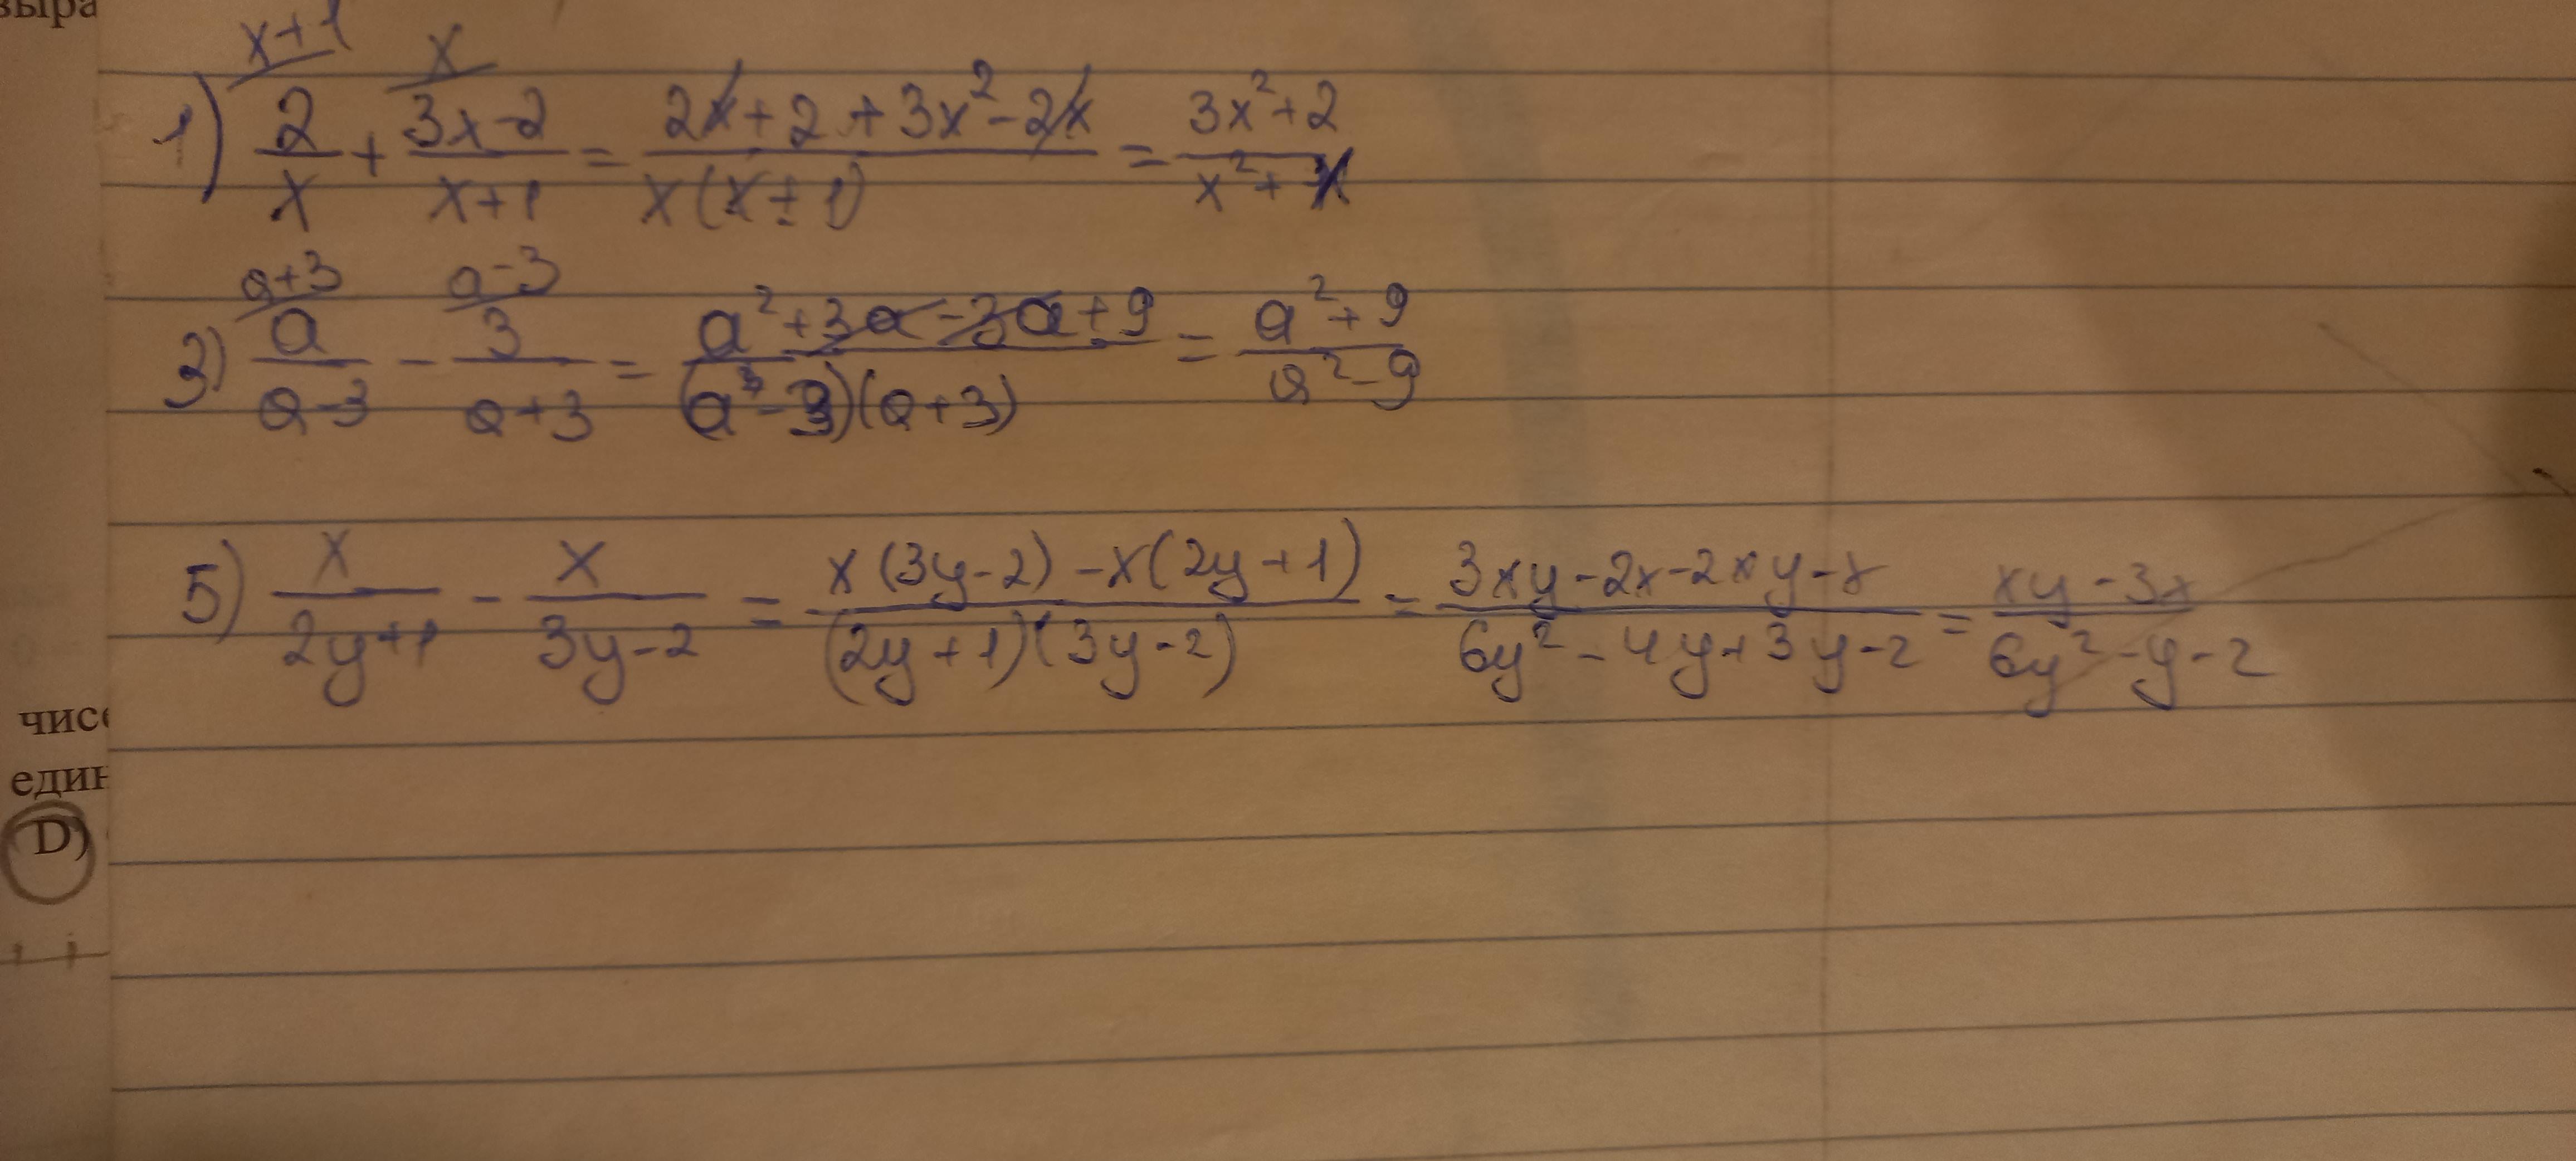 выра
1) x+1 x
2/x + (3x-2)/(x+1) = (2x+2+3x²-2x)/(x(x+1)) = (3x²+2)/(x²+x)
a+3 a-3
3) a/(a-3) - 3/(a+3) = (a²+3a-3a+9)/((a-3)(a+3)) = (a²+9)/(a²-9)
5) x/(2y+1) - x/(3y-2) = (x(3y-2)-x(2y+1))/((2y+1)(3y-2)) = (3xy-2x-2xy-x)/(6y²-4y+3y-2) = (xy-3x)/(6y²-y-2)
чис
един
D)